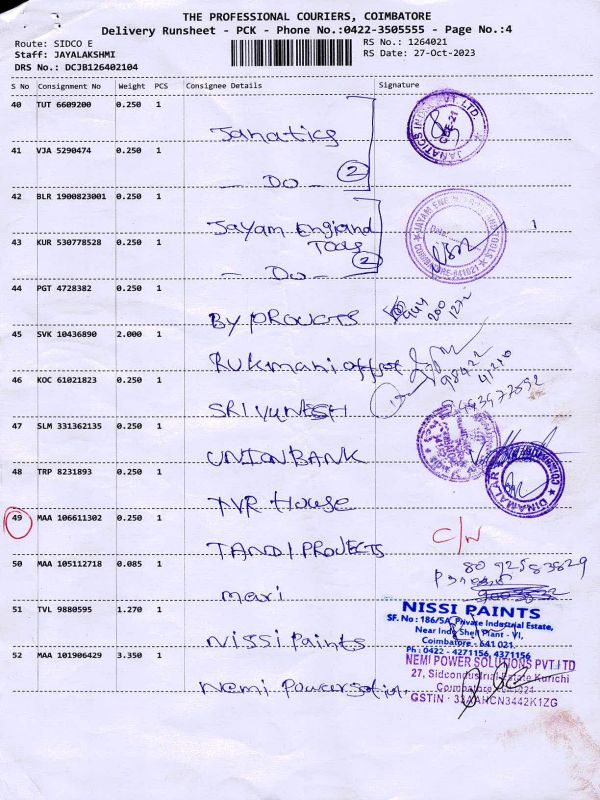 THE PROFESSIONAL COURIERS, COIMBATORE
Delivery Runsheet - PCK - Phone No.:0422-3505555 - Page No.:4
Route: SIDCO E
RS No.: 1264021
Staff: JAYALAKSHMI
RS Date: 27-Oct-2023
DRS No.: DCJB126402104
S No Consignment No Weight PCS Consignee Details Signature
40 TUT 6609200 0.250 1
Janatics
41 VJA 5290474 0.250 1
- Do - 2
42 BLR 1900823001 0.250 1
Jayam Engiand
Tools
43 KUR 530778528 0.250 1
- Do - 2
44 PGT 4728382 0.250 1
By PROUCTS
944
200
1272
45 SVK 10436890 2.000 1
Rukmani offset
98422
41210
46 KOC 61021823 0.250 1
SRI VUNESH
47 SLM 331362135 0.250 1
UNION BANK
48 TRP 8231893 0.250 1
TVR House
DINAMALAR
49 MAA 106611302 0.250 1
TANDI PROJECTS
C/N
50 MAA 105112718 0.085 1
mari
80 92583829
51 TVL 9880595 1.270 1
Nissi Paints
NISSI PAINTS
SF. No : 186/5A, Private Industrial Estate,
Near Indo Shell Plant - VI,
Coimbatore - 641 021.
Ph : 0422 - 4271156, 4371156
52 MAA 101906429 3.350 1
Nemi Power
NEMI POWER SOLUTIONS PVT.LTD
27, Sidcondustrial Estate Kurichi
Coimbatore 641021
GSTIN : 33AAHCN3442K1ZG